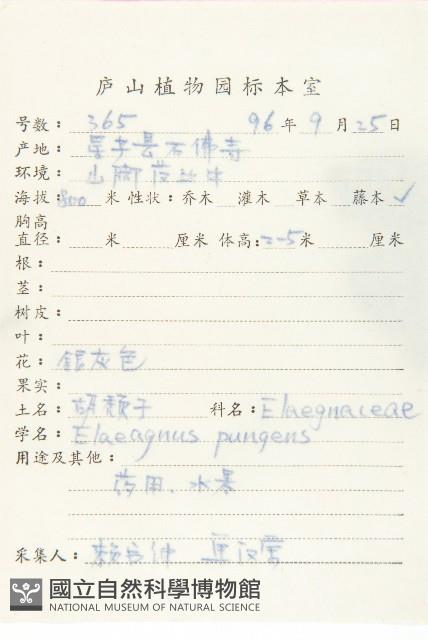 庐山植物园标本室
号数: 365 96 年 9 月 25 日
产地: 星子县石佛寺
环境: 山脚
海拔: 800 米 性状: 乔木 灌木 草本 藤本 ✓
胸高
直径: 米 厘米 体高: 2-5 米 厘米
根:
茎:
树皮:
叶:
花: 银灰色
果实:
土名: 胡颓子 科名: Elaegnaceae
学名: Elaeagnus pungens
用途及其他:
药用、水果
采集人: 赖书绅
國立自然科學博物館
NATIONAL MUSEUM OF NATURAL SCIENCE